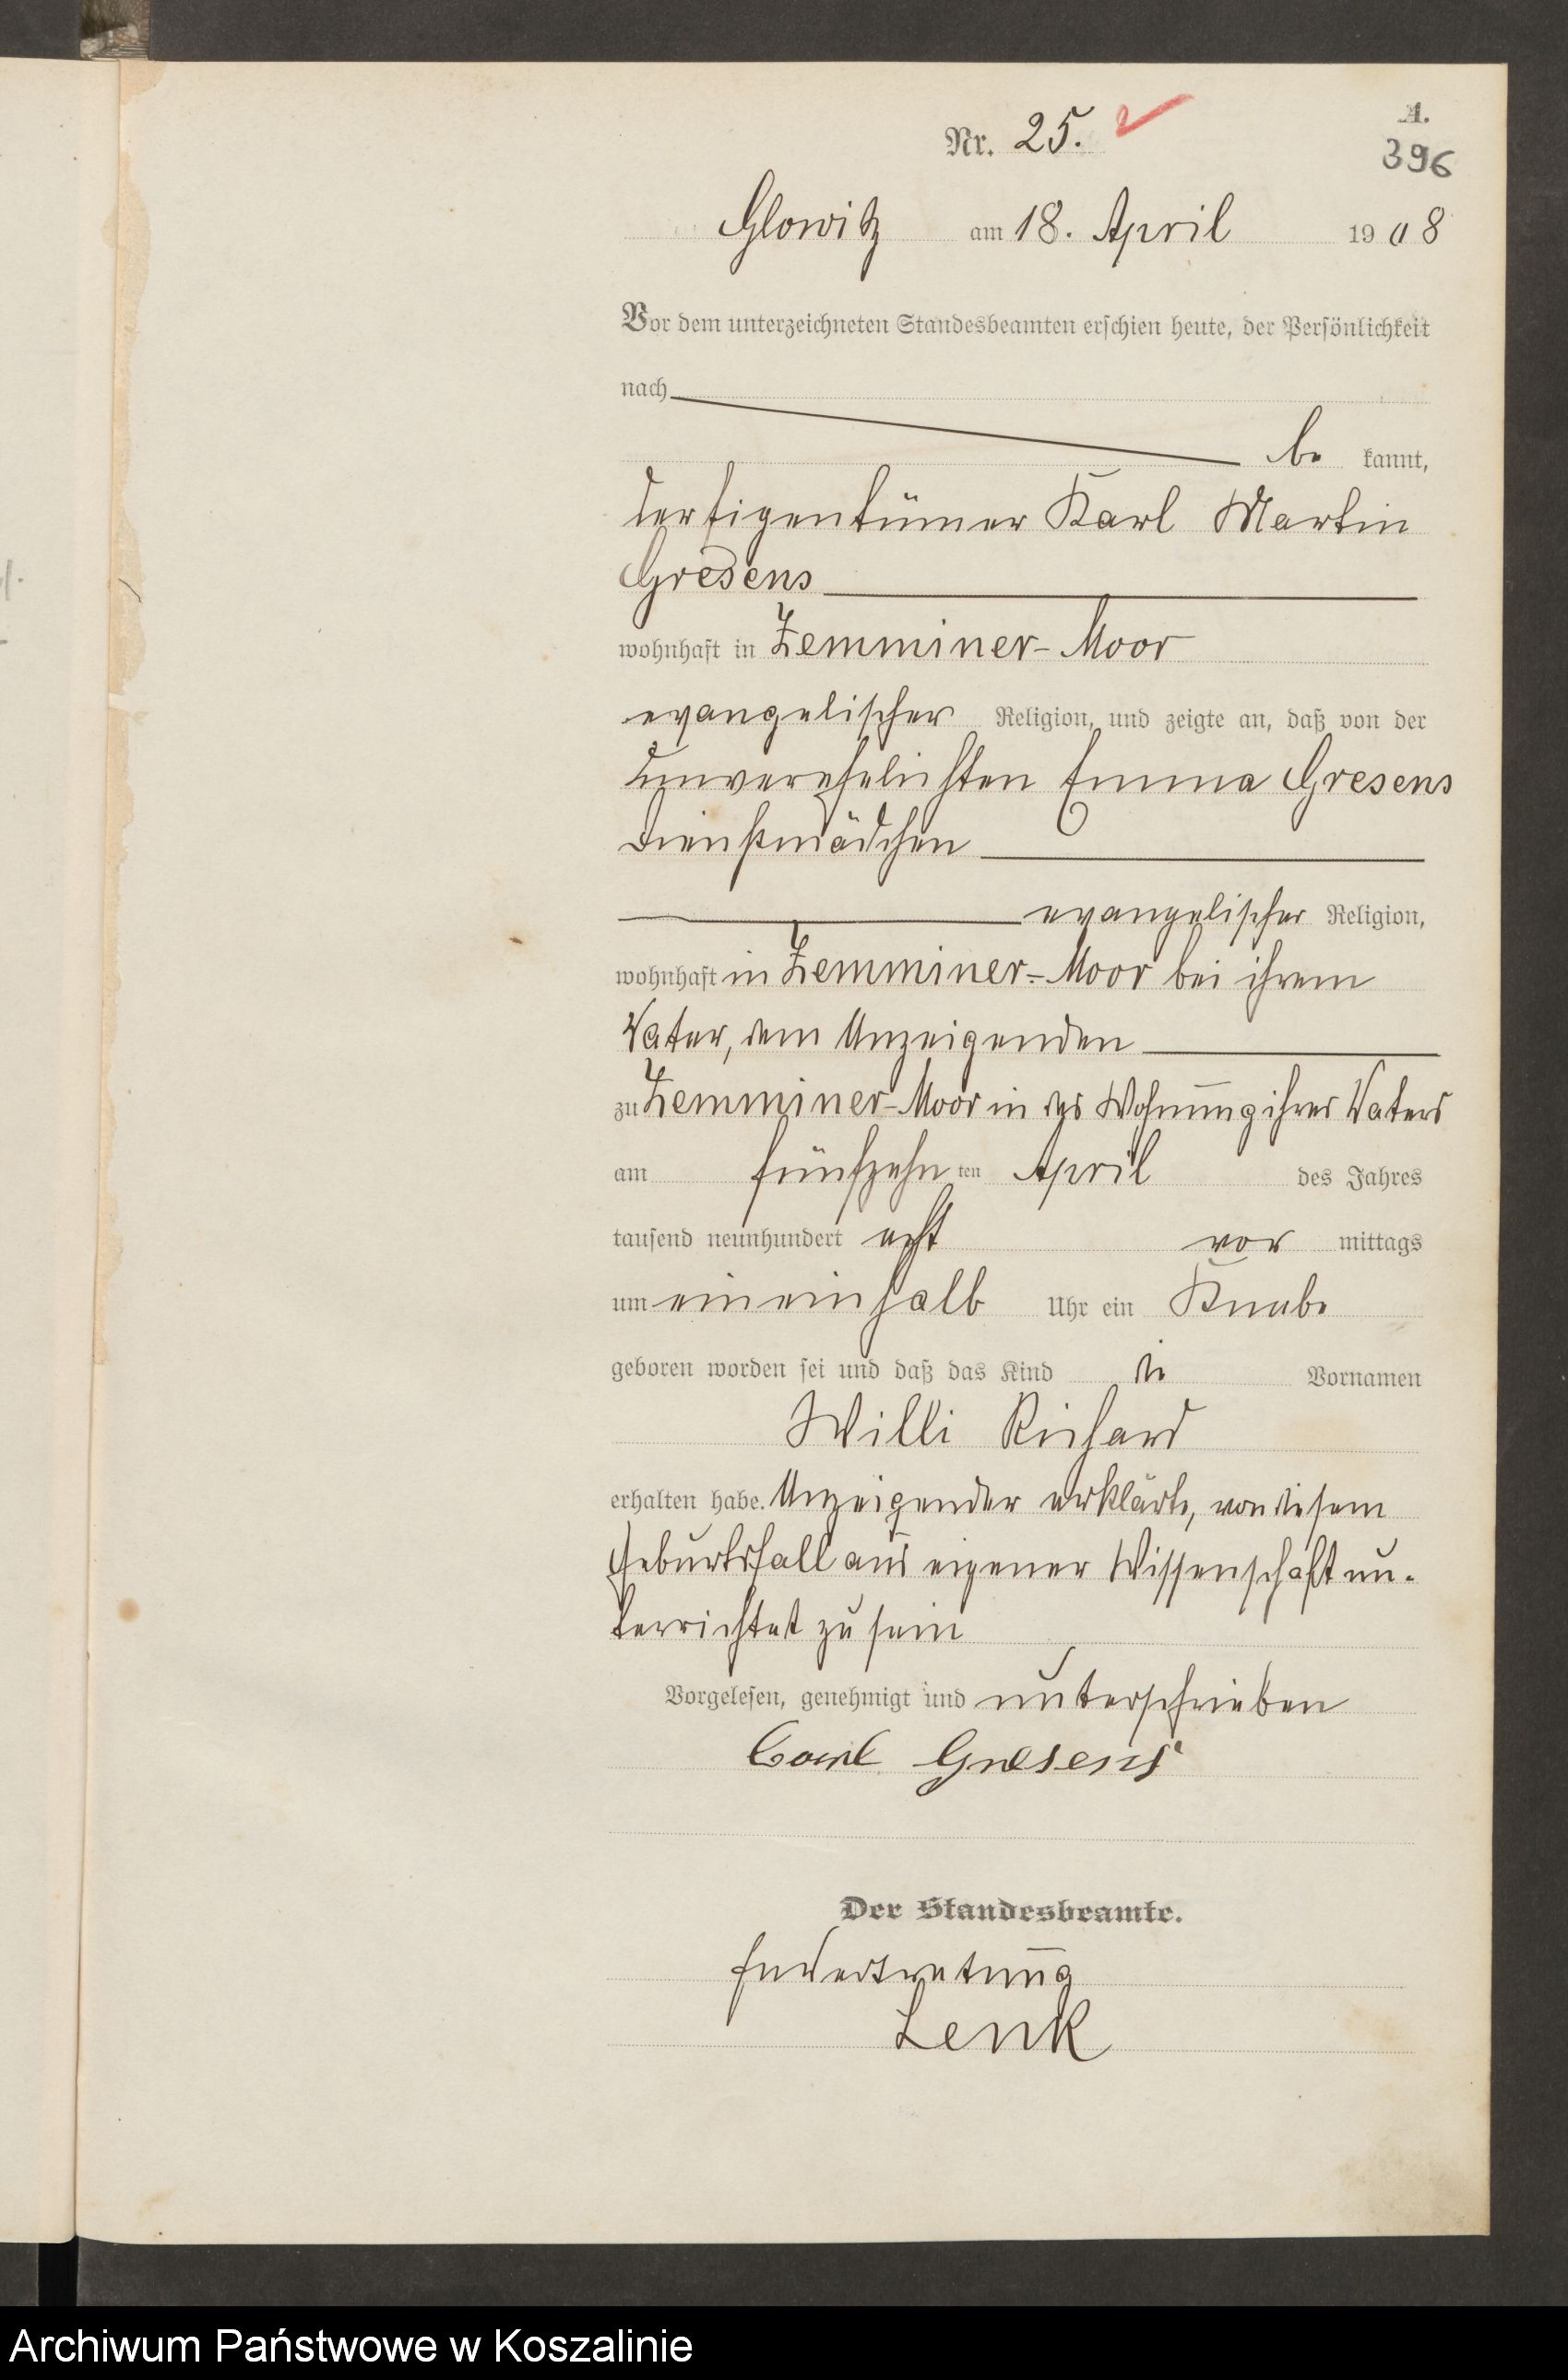 A.
Nr. 25.
396
Glowitz am 18. April 1908
Vor dem unterzeichneten Standesbeamten erschien heute, der Persönlichkeit
nach
be kannt,
der Eigentümer Karl Martin
Gresens
wohnhaft in Zemminer-Moor
evangelischer Religion, und zeigte an, daß von der
unverehelichten Emma Gresens
Dienstmädchen
evangelischer Religion,
wohnhaft in Zemminer-Moor bei ihrem
Vater, dem Anzeigenden
zu Zemminer-Moor in der Wohnung ihres Vaters
am fünfzehn ten April des Jahres
tausend neunhundert acht vor mittags
um eineinhalb Uhr ein Knabe
geboren worden sei und daß das Kind die Vornamen
Willi Richard
erhalten habe. Anzeigender erklärte, von diesem
Geburtsfall aus eigener Wissenschaft un-
terrichtet zu sein
Vorgelesen, genehmigt und unterschrieben
Carl Gresens
Der Standesbeamte.
In Vertretung
Lenk
Archiwum Państwowe w Koszalinie